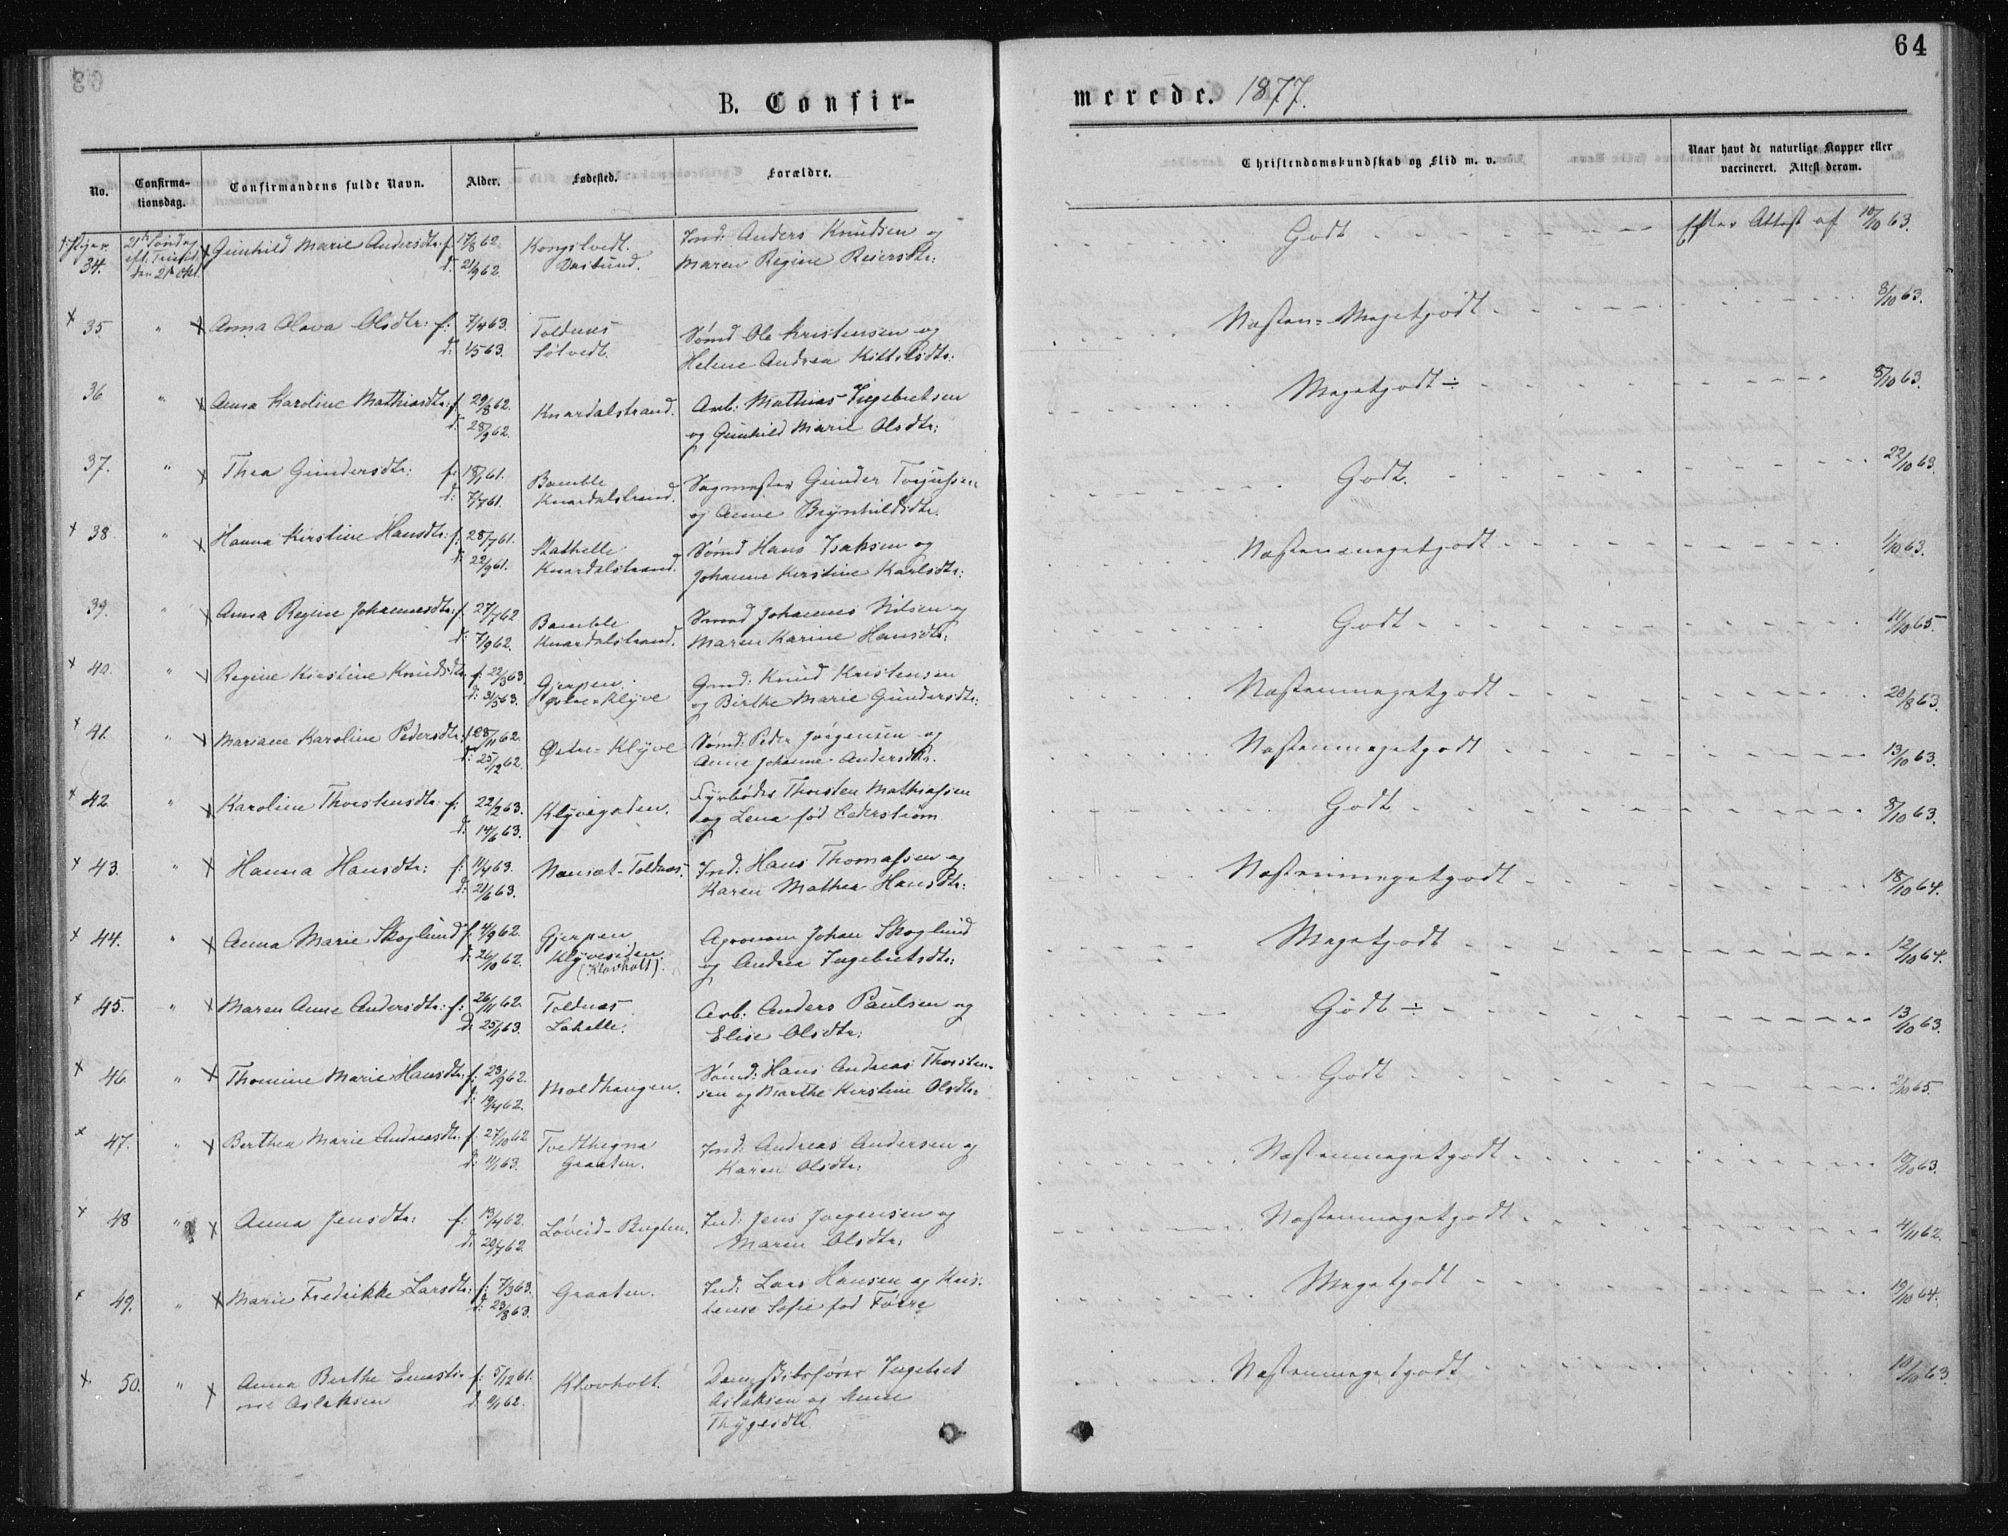 64
B. Confir-
merede. 1877.
No.
Confirma-
tionsdag.
Confirmandens fulde Navn.
Alder.
Fødested.
Forældre.
Christendomskundskab og Flid m. v.
Naar havt de naturlige Kopper eller
vaccineret. Attest derom.
Piger.
34. 21de Søndag eft. Trinit. den 21 Okt. Gunhild Marie Andersdtr: f. 17/8 62. Kongstvedt. Ind: Anders Knudsen og Godt Efter Attest af 10/10 63.
d. 21/9 62. Maren Regine Reiersdtr:
35 " Anna Olava Olsdtr: f. 7/4 63. Toldnæs Sømd Ole Kristensen og Næsten-Megetgodt 8/10 63.
d. 1/5 63. Sølvedt. Helene Andrea Kittilsdtr:
36 " Anna Karoline Mathiasdtr: f. 29/8 62. Knardalstrand. Arb: Mathias Ingebretsen Megetgodt ÷ 8/10 63.
d. 28/9 62. og Gunhild Marie Olsdtr:
37. " Thea Gundersdtr: f. 18/1 61. Bamble Sagmester Gunder Torjussen Godt. 22/10 63.
d. 7/7 61. Knardalstrand. og Anne Brynhildsdtr.
38. " Hanna Kirstine Hansdtr: f. 28/7 61. Stathelle Sømd Hans Isaksen og Næstenmegetgodt 1/10 63.
d. 22/9 61. Knardalstrand. Johanne Kirstine Karlsdtr:
39. " Anna Regine Johannesdtr: f. 27/7 62 Bamble Sømd Johannes Nilsen og Godt 11/10 65.
d. 7/9 62. Knardalstrand. Maren Karine Hansdtr:
40. " Regine Kirstine Knudsdtr. f. 22/3 63. Gjerpen. Gmd: Knud Kristensen Næstenmegetgodt 20/8 63.
d. 31/5 63. Østre-Klyve og Birthe Marie Gundersdtr:
41. " Mariane Karoline Pedersdtr. f. 28/11 62. Østre-Klyve Sømd: Peder Jørgensen og Næstenmegetgodt 13/10 63.
d. 25/12 62. Anne Johanne Andersdtr.
42 " Karoline Thorstensdtr: f. 22/2 63. Klyvegaden. Fyrbøder Thorsten Mathiassen Godt 8/10 63.
d. 14/6 63. og Lena fød Cederstrøm
43. " Hanna Hansdtr: f. 11/4 63. Nenset-Toldnæs. Ind: Hans Thomassen og Næstenmegetgodt 18/10 64.
d. 21/6 63. Karen Mathea Hansdtr:
44. " Anna Marie Skoglund f. 4/9 62. Gjerpen Agronom Johan Skoglund Megetgodt 12/10 64.
d. 26/10 62. Klyvesiden. (Klovholt). og Andrea Ingebretsdtr:
45. " Maren Anne Andersdtr: f. 26/11 62. Toldnæs Arb: Anders Paulsen og Godt ÷ 13/10 63.
d. 25/1 63. Lahelle. Elise Olsdtr:
46. " Thomine Marie Hansdtr: f. 23/9 62. Moldhaugen. Sømd: Hans Andreas Thorsten- Godt 2/10 65.
sen og Marthe Kirstine Olsdtr:
47. " Berthea Marie Andreasdtr: f. 27/10 62 Tvedthegna Ind: Andreas Andersen og Næstenmegetgodt 10/10 63.
d. 1/1 63. Graaten. Karen Olsdtr:
48 " Anna Jensdtr: f. 13/4 62. Løveid-Bugten. Ind: Jens Jørgensen og Næstenmegetgodt 4/11 62.
d. 20/7 62. Maren Olsdtr:
49. " Marie Fredrikke Larsdtr: f. 7/3 63. Graaten. Ind: Lars Hansen og Kris- Megetgodt 19/10 64.
d. 23/8 63. tense Sofie fød
50. " Anna Berthe Ernesti- f. 5/12 61. Klovholt. Dampskibsfører Ingebret Næstenmegetgodt 10/10 63.
ne Aslaksen Aslaksen og Anne
Thygesdtr.